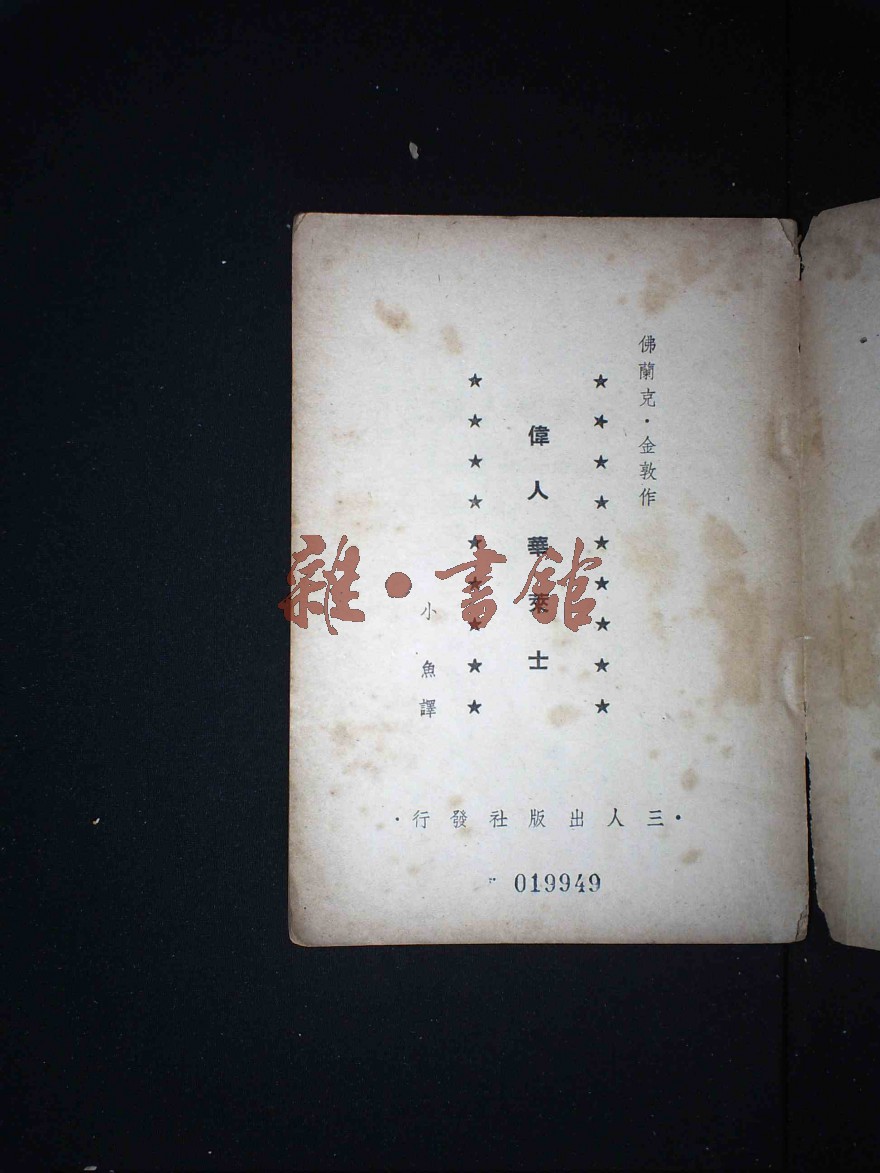 佛蘭克·金敦作
偉人華萊士
小魚譯
·三人出版社發行·
019949
雜·書館